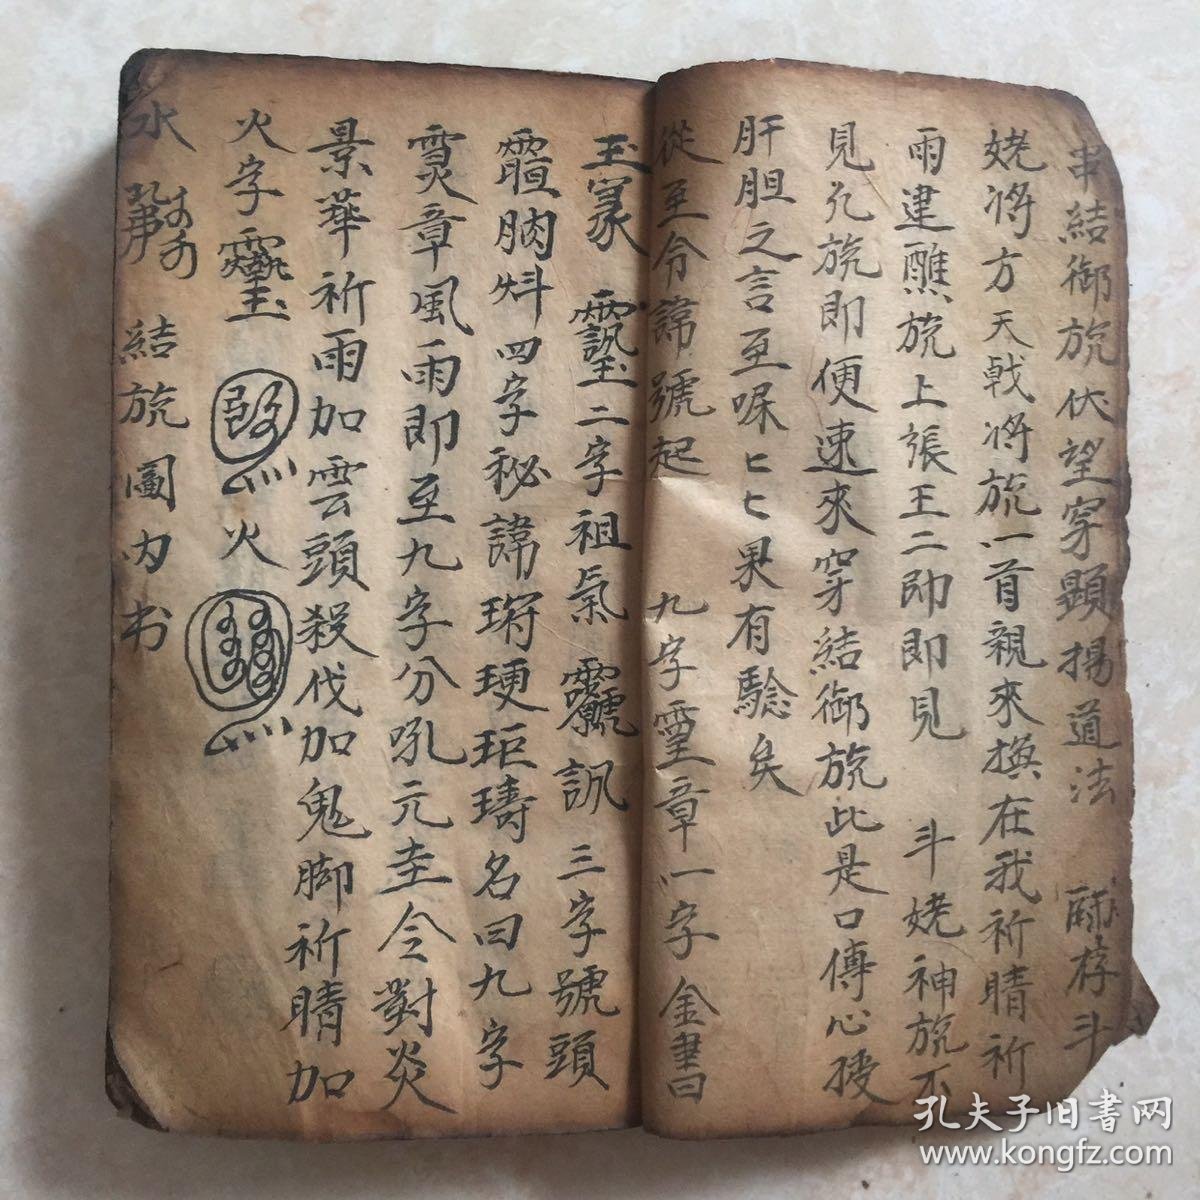 串結御旂伏望穿顯揚道法 存斗
姥將方天戟將旂一首親來換在我祈晴祈
雨建醮旂上張王二帥即見 斗姥神旂不
見允旂即便速來穿結御旂此是口傳心授
肝胆之言至嘱匕匕果有驗矣
從至令諱號起 九字靈章一字金書
玉篆 二字祖氣 訊三字號頭
四字秘諱 名曰九字
章風雨即至九字分吼元圭令對炎
景華祈雨加雲頭殺伐加鬼脚祈晴加
火字 火
水 結旂圖內书
孔夫子旧書网
www.kongfz.com